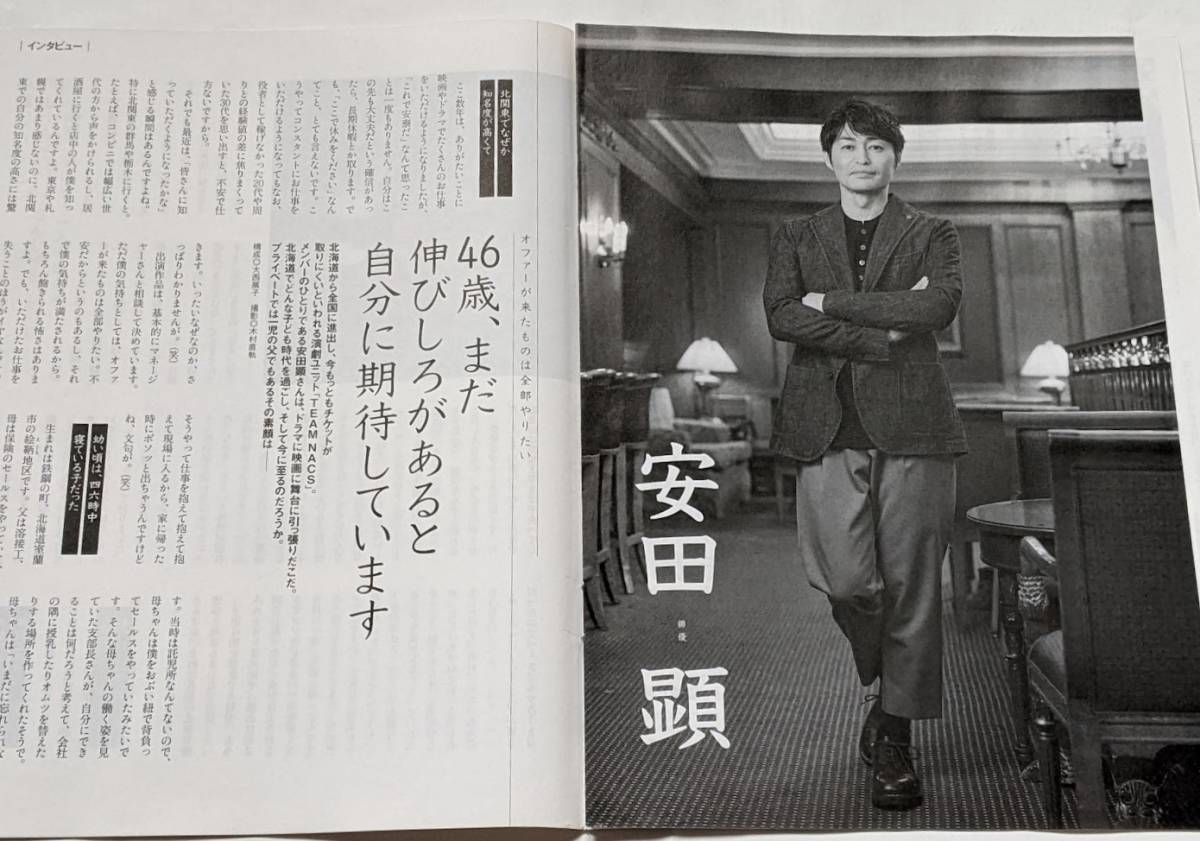 インタビュー
安田 顕
俳優
オファーが来たものは全部やりたい。
46歳、まだ
伸びしろがあると
自分に期待しています
北海道から全国に進出し、今もっともチケットが
取りにくいといわれる演劇ユニット「TEAM NACS」。
メンバーのひとりである安田顕さんは、ドラマに映画に舞台に引っ張りだこだ。
北海道でどんな子ども時代を過ごし、そして今に至るのだろうか。
プライベートでは一児の父でもあるその素顔は――
構成◎大西展子 撮影◎木村直軌
北関東でなぜか
知名度が高くて
ここ数年は、ありがたいことに
映画やドラマでたくさんのお仕事
をいただけるようになりましたが、
「これで安泰だ」なんて思ったこ
とは一度もありません。自分はこ
の先も大丈夫だという確信があっ
たら、長期休暇とか取ります。で
も、「ここで休みをください」なん
てこと、とても言えないです。こ
うやってコンスタントにお仕事を
いただけるようになってもなお、
役者として稼げなかった20代や周
りとの経験値の差に焦りまくって
いた30代を思い出すと、不安で仕
方ないですから。
それでも最近は、「皆さんに知
っていただくようになったかな」
と感じる瞬間はあるんですよね。
特に北関東の群馬や栃木に行くと。
たとえば、コンビニでは幅広い世
代の方から声をかけられるし、居
酒屋に行くと店中の人が僕を知っ
てくれているんですよ。東京や札
幌ではあまり感じないのに、北関
東での自分の知名度の高さには驚
きます。いったいなぜなのか、さ
っぱりわかりませんが。(笑)
出演作品は、基本的にマネージ
ャーさんと相談して決めています。
ただ僕の気持ちとしては、オファ
ーが来たものは全部やりたい。不
安だからというのもあるし、それ
で僕の気持ちが満たされるから。
もちろん飽きられる怖さはありま
すよ。でも、いただけたお仕事を
失うことのほうが
そうやって仕事を抱えて抱えて抱
えて現場に入るから、家に帰った
時にボソッと出ちゃうんですけど
ね、文句が。(笑)
幼い頃は、四六時中
寝ている子だった
生まれは鉄鋼の町、北海道室蘭
市の絵鞆地区です。父は溶接工、
母は保険のセールスをやってい
す。当時は託児所なんてないので、
母ちゃんは僕をおぶい紐で背負っ
てセールスをやっていたみたいで
す。そんな母ちゃんの働く姿を見
ていた支部長さんが、自分にでき
ることは何だろうと考えて、会社
の隅に授乳したりオムツを替えた
りする場所を作ってくれたそうで。
母ちゃんは「いまだに忘れられな